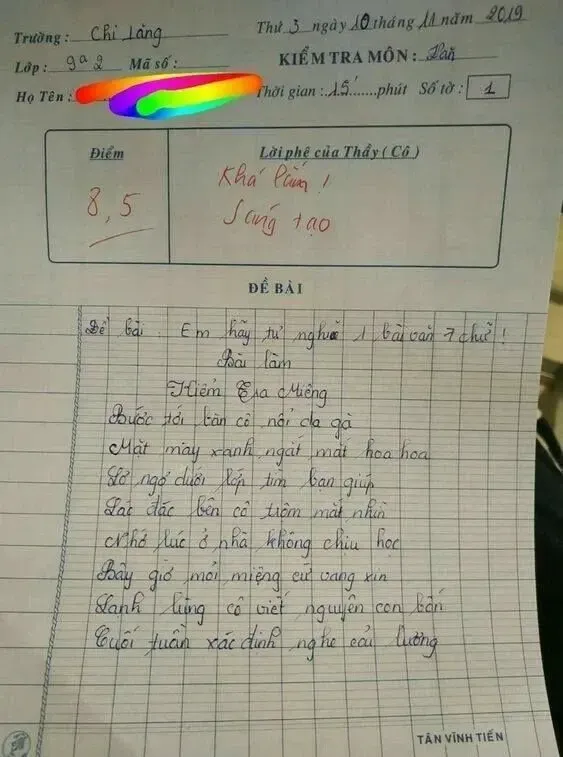 Trường : Chi Lăng
Thứ 3 ngày 10 tháng 11 năm 2019
Lớp : 9a2 Mã số :
KIỂM TRA MÔN : Văn
Họ Tên :
Thời gian : 15' phút Số tờ : 1
Điểm
Lời phê của Thầy ( Cô )
8,5
Khá lắm !
Sáng tạo
ĐỀ BÀI
Đề bài : Em hãy tự nghĩ 1 bài văn 7 chữ !
Bài làm
Kiểm Tra Miệng
Bước tới bàn cô nổi da gà
Mặt mày xanh ngắt mắt hoa hoa
Lơ ngơ dưới lớp tìm bạn giúp
Lác đác bên cô trộm mắt nhìn
Nhớ lúc ở nhà không chịu học
Bây giờ mỏi miệng cứ vang xin
Lạnh lùng cô viết nguyên con bốn
Cuối tuần xác định nghe cải lương
TÂN VĨNH TIẾN